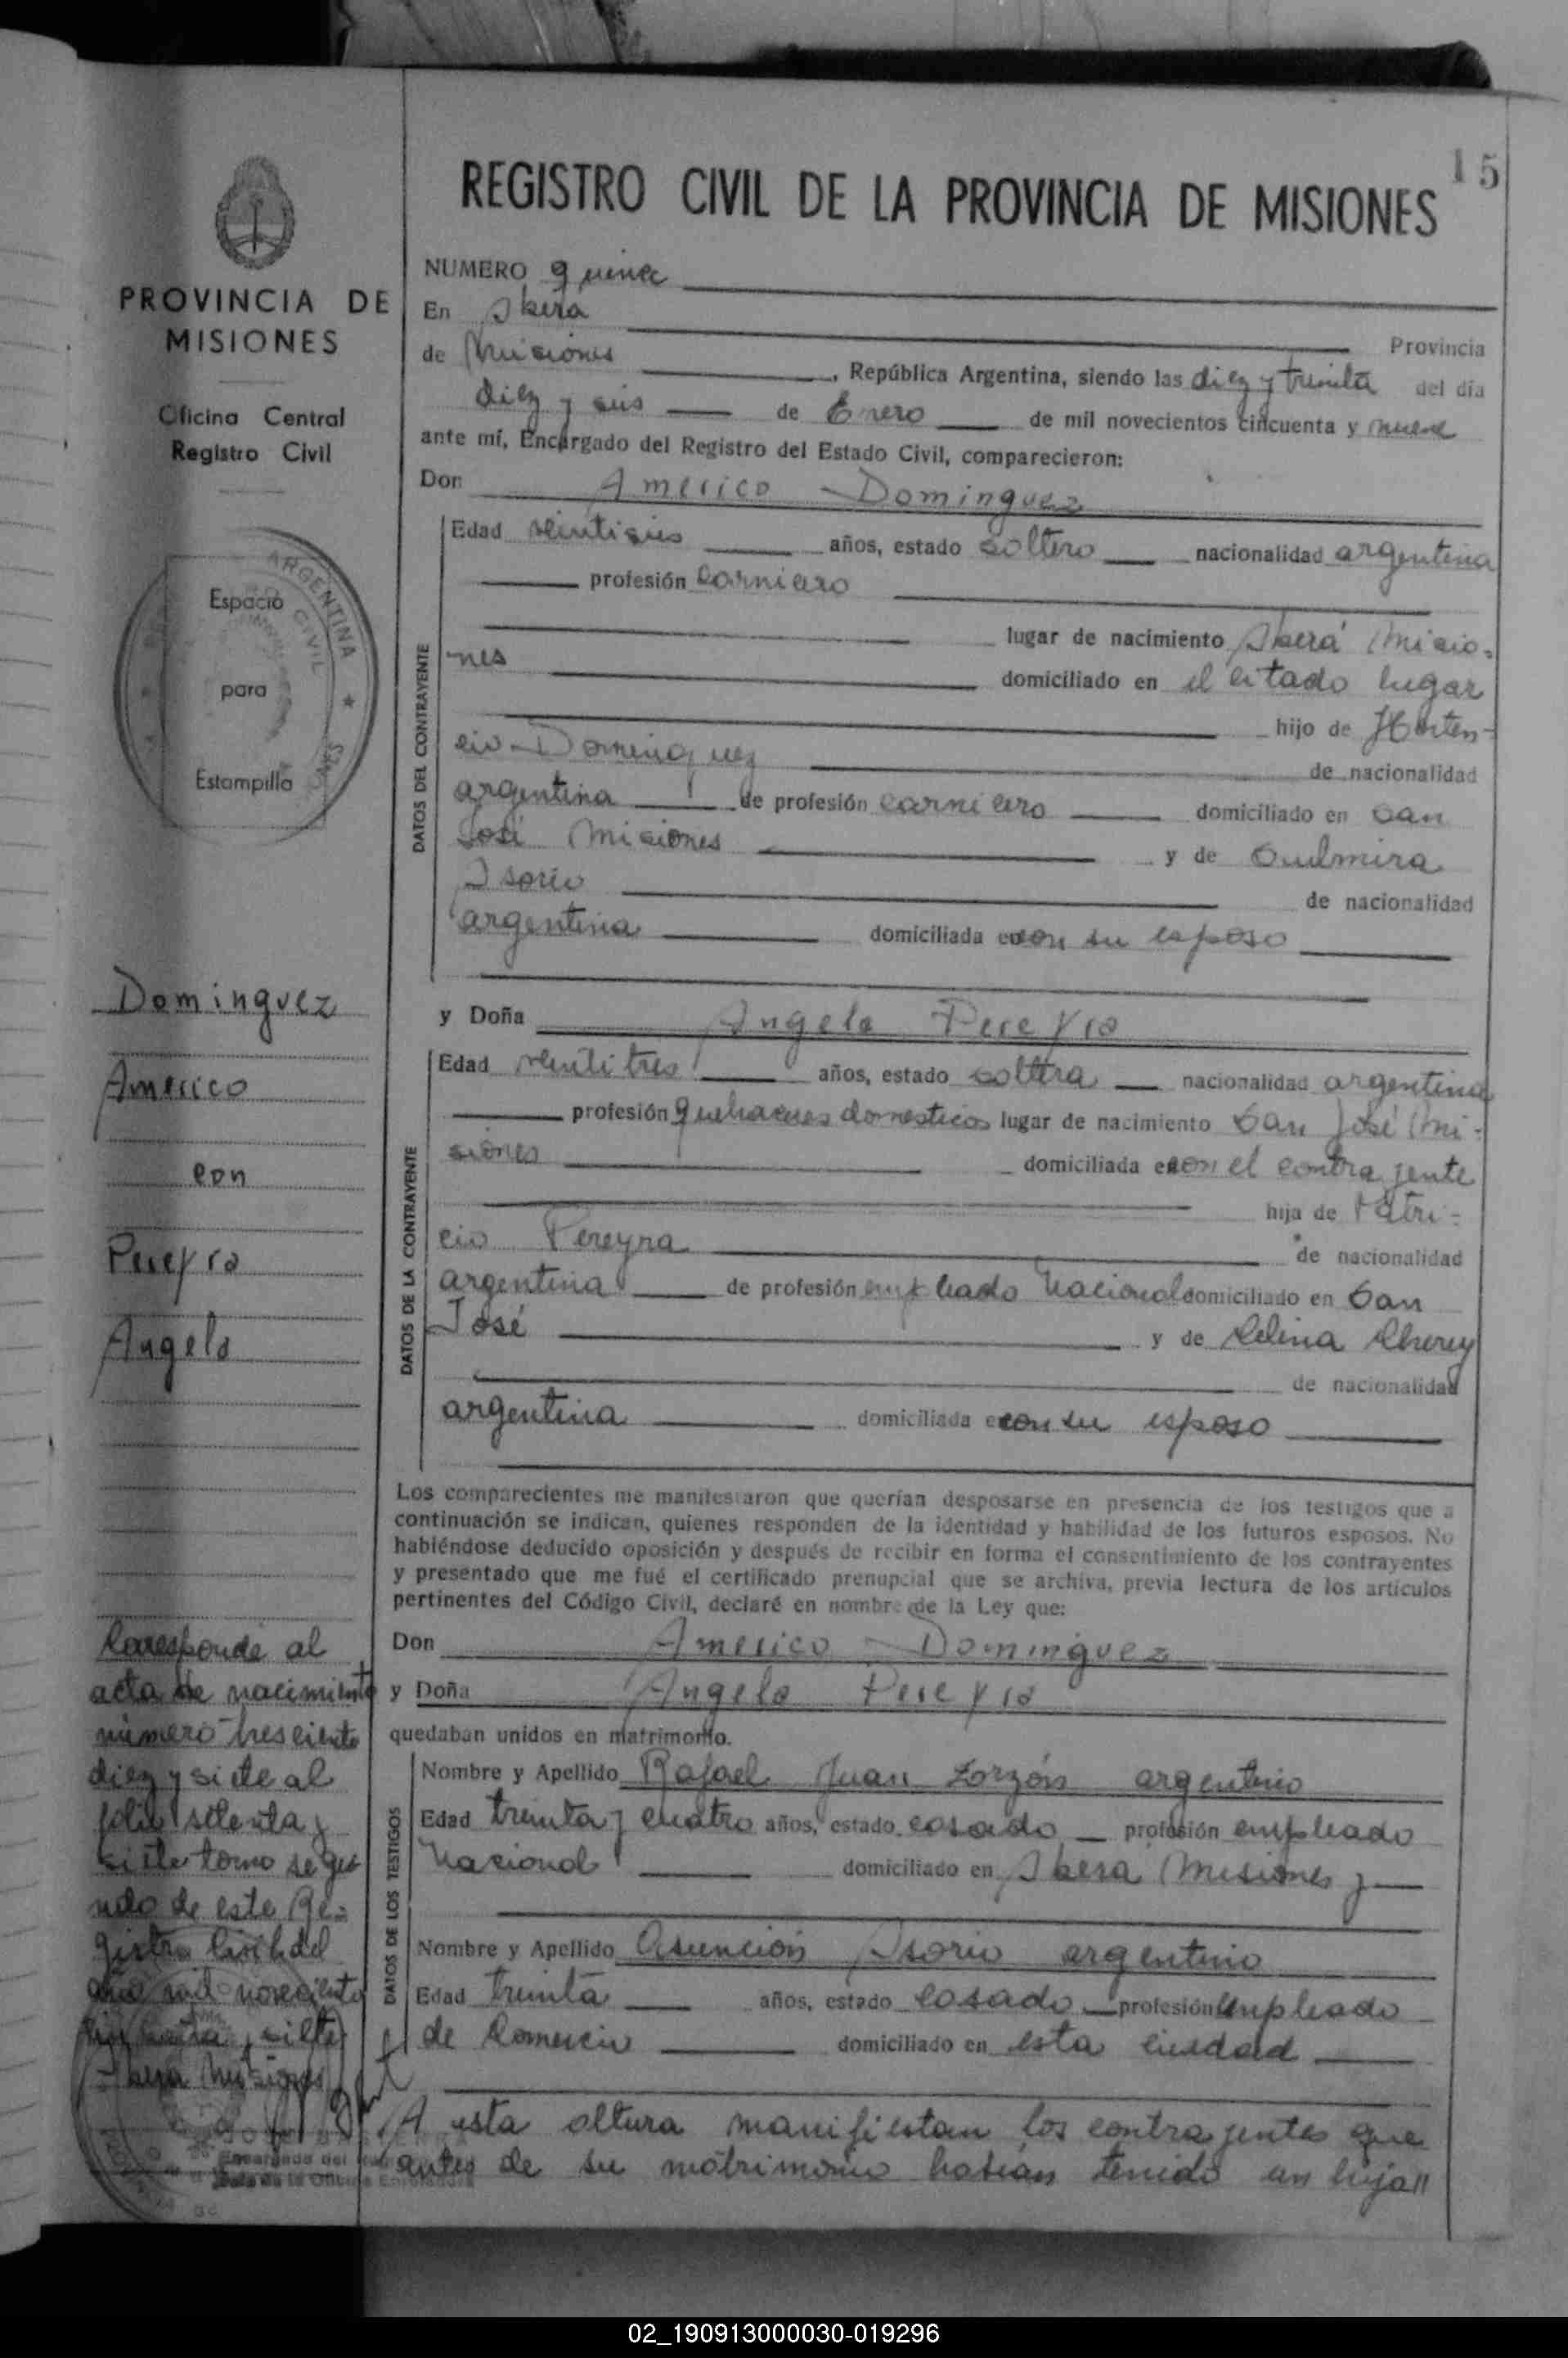 15
REGISTRO CIVIL DE LA PROVINCIA DE MISIONES
PROVINCIA DE
MISIONES
Oficina Central
Registro Civil
ARGENTINA
CIVIL
Espacio
para
Estampilla
Dominguez
Americo
con
Pereyra
Angela
Corresponde al
acta de nacimiento
número tresciento
diez y siete al
folio setenta y
siete tomo segu
ndo de este Re=
gistro Civil del
año mil novecientos
cincuenta y siete
Misiones
NUMERO quince
En Iberá
Provincia
de Misiones, República Argentina, siendo las diez y treinta del día
diez y seis de Enero de mil novecientos cincuenta y nueve
ante mí, Encargado del Registro del Estado Civil, comparecieron:
Don Americo Dominguez
DATOS DEL CONTRAYENTE
Edad veintiseis años, estado soltero nacionalidad argentina
profesión carnicero
lugar de nacimiento Iberá Misio=
nes domiciliado en el citado lugar
hijo de Horten-
cio Dominguez de nacionalidad
argentina de profesión carnicero domiciliado en San
José Misiones y de
de nacionalidad
argentina domiciliada en con su esposo
y Doña Angela Pereyra
DATOS DE LA CONTRAYENTE
Edad veintitres años, estado soltera nacionalidad argentina
profesión quehaceres domesticos lugar de nacimiento San José Mi=
siones domiciliada en con el contrayente
hija de Patri=
cio Pereyra de nacionalidad
argentina de profesión empleado Nacional domiciliado en San
José y de Celina
de nacionalidad
argentina domiciliada en con su esposo
Los comparecientes me manifestaron que querían desposarse en presencia de los testigos que a
continuación se indican, quienes responden de la identidad y habilidad de los futuros esposos. No
habiéndose deducido oposición y después de recibir en forma el consentimiento de los contrayentes
y presentado que me fué el certificado prenupcial que se archiva, previa lectura de los artículos
pertinentes del Código Civil, declaré en nombre de la Ley que:
Don Americo Dominguez
y Doña Angela Pereyra
quedaban unidos en matrimonio.
DATOS DE LOS TESTIGOS
Nombre y Apellido Rafael Juan Zorzón argentino
Edad treinta y cuatro años, estado casado profesión empleado
Nacional domiciliado en Iberá Misiones y
Nombre y Apellido Asunción Osorio argentino
Edad treinta años, estado casado profesión empleado
de Comercio domiciliado en esta ciudad
A esta altura manifiestan los contrayentes que
antes de su matrimonio habían tenido un hijo //
02_190913000030-019296